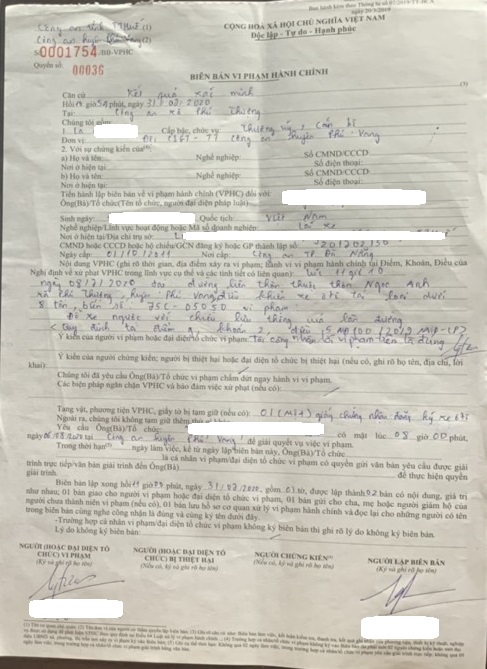 Công an tỉnh TT Huế (1)
Công an huyện Phú Vang (2)
Số 0001754 /BB-VPHC
Quyển số: 00036
CỘNG HOÀ XÃ HỘI CHỦ NGHĨA VIỆT NAM
Độc lập - Tự do - Hạnh phúc
BIÊN BẢN VI PHẠM HÀNH CHÍNH
Căn cứ Kết quả xác minh (3)
Hồi phút, ngày 31/07/2020
Tại: Công an xã Phú Thượng
Chúng tôi gồm:
1. Cấp bậc, chức vụ: Thượng úy, cán bộ
Đơn vị: Công an huyện Phú Vang
2. Với sự chứng kiến của:(4)
a) Họ và tên: Nghề nghiệp: Số CMND/CCCD
Nơi ở hiện tại: Số điện thoại:
b) Họ và tên: Nghề nghiệp: Số CMND/CCCD
Nơi ở hiện tại: Số điện thoại:
Tiến hành lập biên bản về vi phạm hành chính (VPHC) đối với:
Ông(Bà)/Tổ chức(Tên tổ chức, người đại diện pháp luật):
Sinh ngày: Quốc tịch: Việt Nam
Nghề nghiệp/Lĩnh vực hoạt động hoặc Mã số doanh nghiệp: Lái xe
Nơi ở hiện tại/Địa chỉ trụ sở:
CMND hoặc CCCD hoặc hộ chiếu/GCN đăng ký hoặc GP thành lập số
Ngày cấp: 01/10/2011 Nơi cấp: Công an TP Đà Nẵng
Nội dung VPHC (ghi rõ thời gian, địa điểm xảy ra vi phạm; hành vi vi phạm hành chính tại Điểm, Khoản, Điều của
Nghị định về xử phạt VPHC trong lĩnh vực cụ thể và các tình tiết có liên quan): Lúc 11 giờ 10
ngày 08/7/2020 đường liên thôn thuộc thôn Ngọc Anh
xã Phú Thượng, huyện Phú Vang điều khiển xe ô tô tải loại dưới
tấn, biển số 75C-05050 vi phạm:
Đỗ xe ngược với chiều lưu thông của làn đường
(Quy định tại điểm khoản 2, điều 5 NĐ 100/2019/NĐ-CP)
Ý kiến của người vi phạm hoặc đại diện tổ chức vi phạm: Tôi công nhận lỗi vi phạm trên là đúng
Ý kiến của người chứng kiến; người bị thiệt hại hoặc đại diện tổ chức bị thiệt hại (nếu có, ghi rõ họ tên, địa chỉ, lời
khai):
Chúng tôi đã yêu cầu Ông(Bà)/Tổ chức vi phạm chấm dứt ngay hành vi vi phạm.
Các biện pháp ngăn chặn VPHC và bảo đảm việc xử phạt (nếu có):
Tang vật, phương tiện VPHC, giấy tờ bị tạm giữ (nếu có): 01 (Một) giấy chứng nhận đăng ký xe ô tô
Ngoài ra, chúng tôi không tạm giữ thêm
Yêu cầu Ông(Bà)/Tổ chức: có mặt lúc 08 giờ 00 phút,
ngày tại Công an huyện Phú Vang để giải quyết vụ việc vi phạm.
Trong thời hạn(5) ngày làm việc, kể từ ngày lập biên bản này, Ông(Bà)/Tổ chức
là cá nhân vi phạm/đại diện tổ chức vi phạm có quyền gửi văn bản yêu cầu được giải
trình trực tiếp/văn bản giải trình đến Ông(Bà) để thực hiện quyền
giải trình.
Biên bản lập xong hồi phút, ngày 31/7/2020, gồm 01 tờ, được lập thành 02 bản có nội dung, giá trị
như nhau; 01 bản giao cho người vi phạm hoặc đại diện tổ chức vi phạm, 01 bản gửi cho cha, mẹ hoặc người giám hộ của
người chưa thành niên vi phạm (nếu có), 01 bản lưu hồ sơ cơ quan xử lý vi phạm hành chính và đọc lại cho những người có tên
trong biên bản cùng nghe công nhận là đúng và cùng ký tên dưới đây.
-Trường hợp cá nhân vi phạm/đại diện tổ chức vi phạm không ký biên bản thì ghi rõ lý do không ký biên bản.
Lý do không ký biên bản:
NGƯỜI (HOẶC ĐẠI DIỆN TỔ CHỨC) VI PHẠM
(Ký và ghi rõ họ tên)
NGƯỜI (HOẶC ĐẠI DIỆN TỔ CHỨC) BỊ THIỆT HẠI
(Ký và ghi rõ họ tên)
NGƯỜI CHỨNG KIẾN(4)
(Nếu có, ký và ghi rõ họ tên)
NGƯỜI LẬP BIÊN BẢN
(Ký, ghi rõ họ tên)